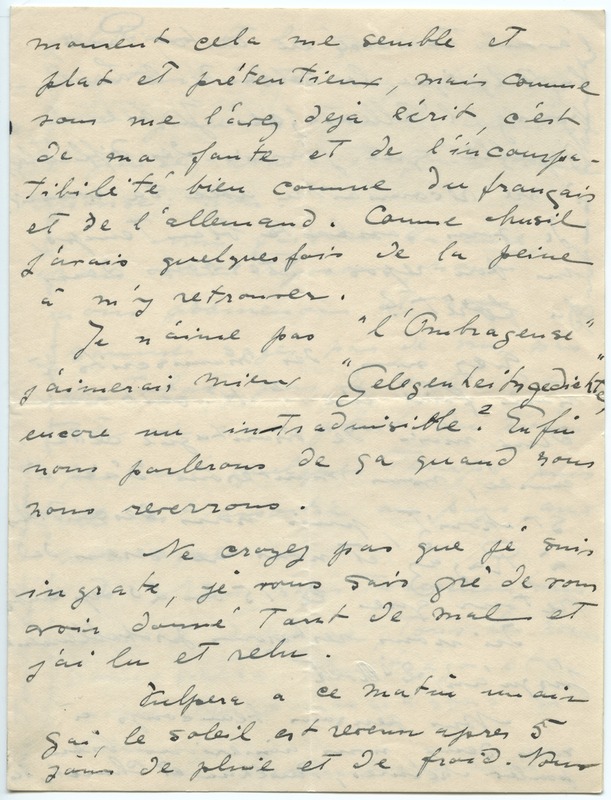 moment cela me semble et
plat et prétentieux, mais comme
vous me l'avez dejà écrit, c'est
de ma faute et de l'incompa-
tibilité bien comme du français
et de l'allemand. Comme
j'avais quelquesfois de la peine
à m'y retrouver.
Je n'aime pas "l'Ombrageuse"
j'aimerais mieux "Gelegenheitsgedichte"
encore un intraduisible? Enfin
nous parlerons de ça quand nous
nous reverrons.
Ne croyez pas que je suis
ingrate, je vous sais gré de vous
avoir donné tant de mal et
j'ai lu et relu.
Vulpera a ce matin un air
gai, le soleil est revenu apres 5
jours de pluie et de froid. Nous